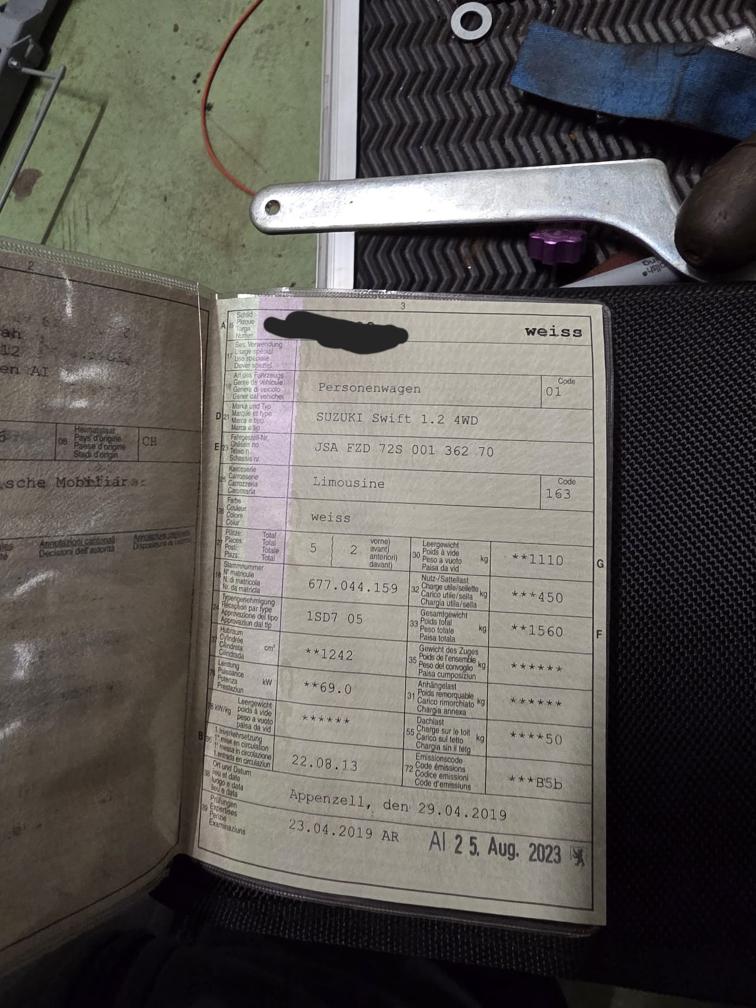 2
ah
12
en AI
08
Heimatstaat
Pays d'origine
Paese d'origine
Stadi d'origin
CH
sche Mobiliar
Annotazioni cantonali
Decisioni dell'autorità
3
A
Schild
Plaque
Targa
Numer
weiss
17
Bes. Verwendung
Usage spécial
Uso speciale
Diever spezial
Art des Fahrzeugs
Genre de véhicule
Genere di veicolo
Gener dal vehichel
Personenwagen
Code
01
D
21
Marke und Typ
Marque et type
Marca e tipo
Marca e tip
SUZUKI Swift 1.2 4WD
E
23
Fahrgestell-Nr.
Châssis no
Telaio n.
Schassis nr.
JSA FZD 72S 001 362 70
Karosserie
Carrosserie
Carrozzeria
Carossaria
Limousine
Code
163
Farbe
Couleur
Colore
Colur
weiss
Plätze Total
Places Total
Posti Totale
Plazs Total
5
2
vorne)
avant)
anteriori)
davant)
30
Leergewicht
Poids à vide
Peso a vuoto
Paisa da vid
kg
**1110
G
Stammnummer
N° matricule
N. di matricola
Nr. da matricla
677.044.159
32
Nutz-/Sattellast
Charge utile/sellette
Carico utile/sella
Chargia utila/sella
kg
***450
Typengenehmigung
Réception par type
Approvazione del tipo
Approvaziun dal tip
1SD7 05
33
Gesamtgewicht
Poids total
Peso totale
Paisa totala
kg
**1560
F
37
Hubraum
Cylindrée
Cilindrata
Cilindrada
cm³
**1242
35
Gewicht des Zuges
Poids de l'ensemble
Peso del convoglio
Paisa cumposiziun
kg
******
Leistung
Puissance
Potenza
Prestaziun
kW
**69.0
31
Anhängelast
Poids remorquable
Carico rimorchiato
Chargia annexa
kg
******
kW/kg
Leergewicht
poids à vide
peso a vuoto
paisa da vid
******
55
Dachlast
Charge sur le toit
Carico sul tetto
Chargia sin il tetg
kg
****50
B
1. Inverkehrsetzung
1re mise en circulation
1a messa in circolazione
1. entrada en circulaziun
22.08.13
72
Emissionscode
Code émissions
Codice emissioni
Code d'emissiuns
***B5b
Ort und Datum
lieu et date
luogo e data
lieu e data
Appenzell, den 29.04.2019
39
Prüfungen
Expertises
Perizie
Examinaziuns
23.04.2019 AR
AI 25. Aug. 2023